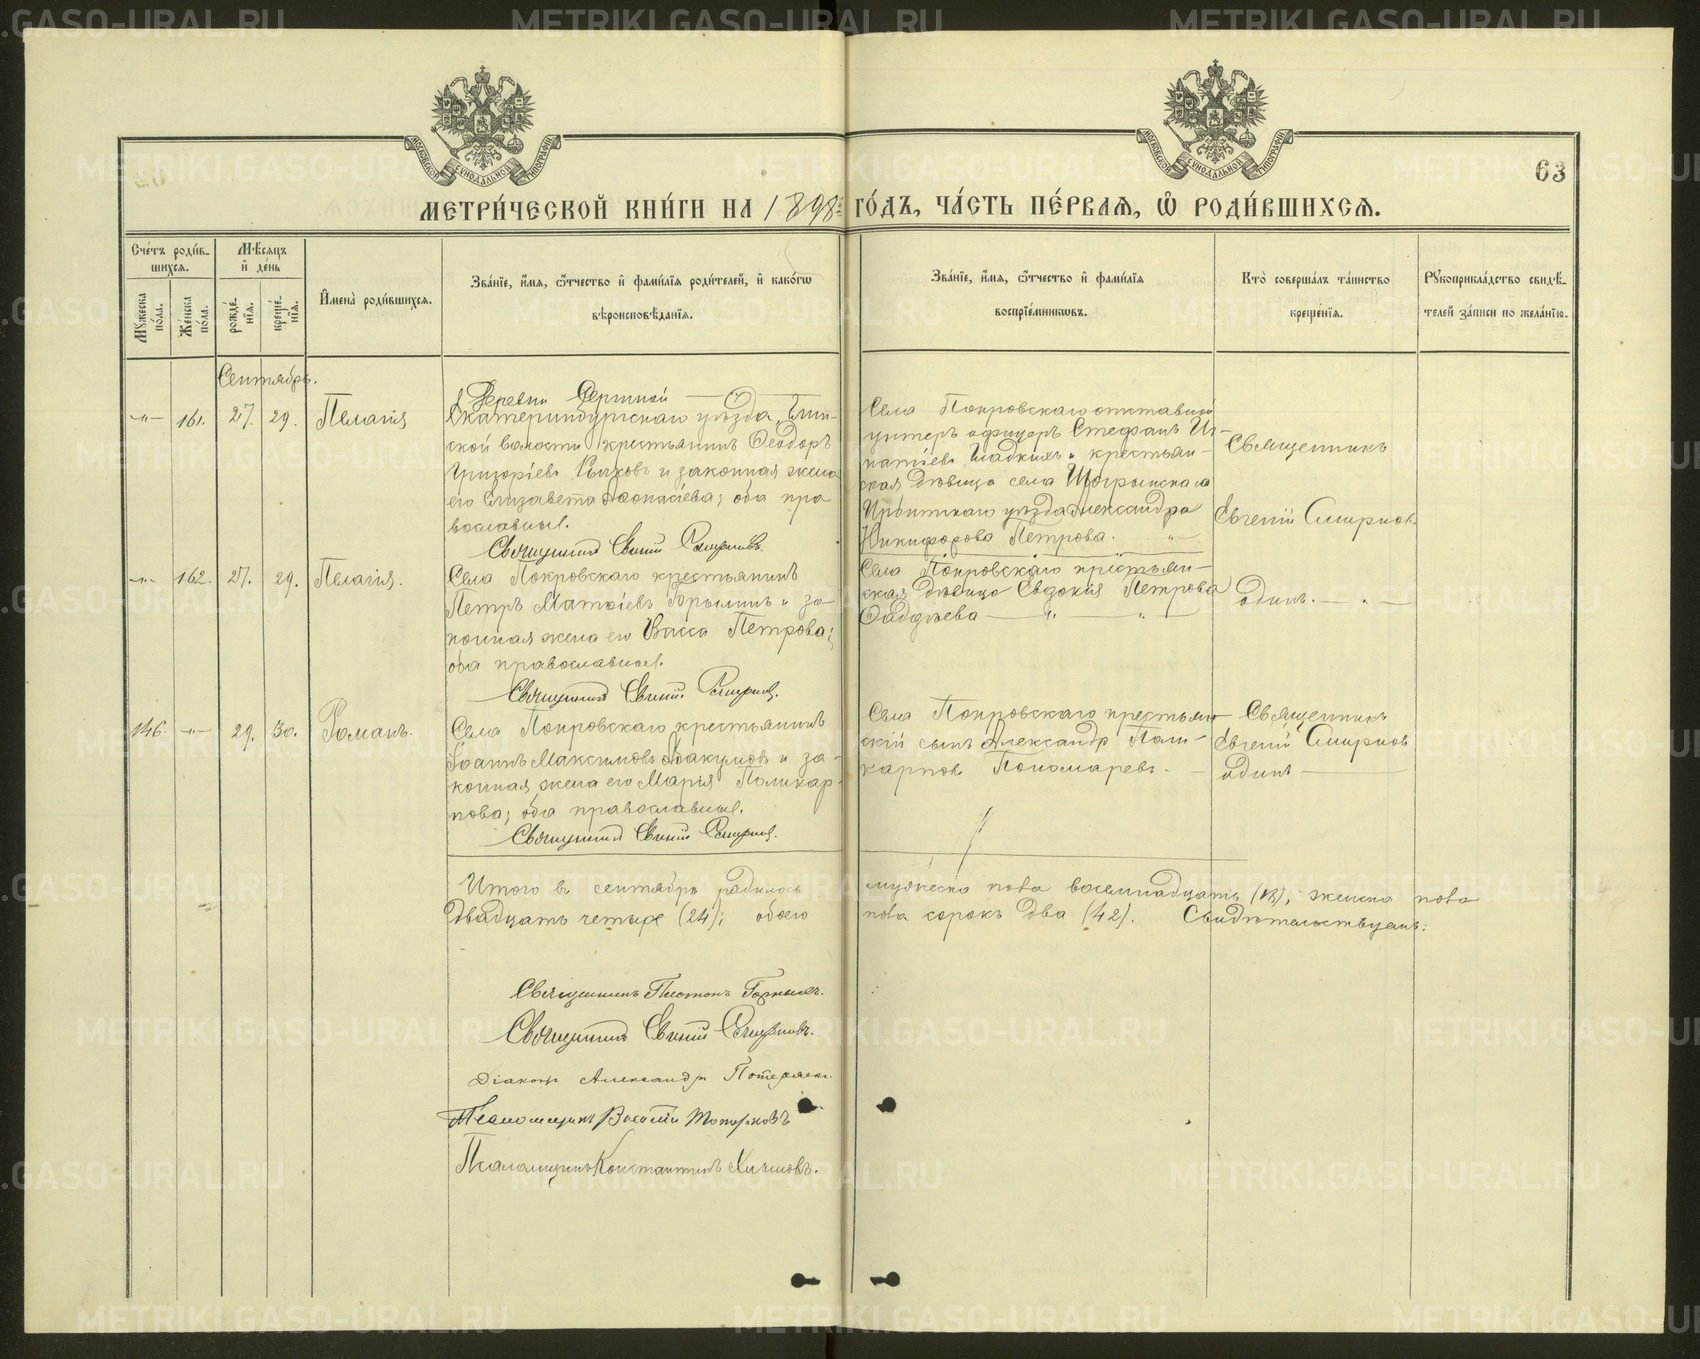 МЕТРИ́ЧЕСКОЙ КНИ́ГИ НА 1898й ГО́ДЪ, ЧА́СТЬ ПЕ́РВАѦ, Ѡ҆ РОДИ́ВШИХСѦ.
63
Сче́тъ роди́в-
шихсѧ.
Мѣ́сяцъ
и҆ де́нь
Мꙋ́жеска
по́ла.
Же́нска
по́ла.
рожде́-
нїѧ.
креще́-
нїѧ.
И҆мена̀ роди́вшихсѧ.
Зва́нїе, и҆́мѧ, ѻ҆́тчество и҆ фами́лїѧ роди́телей, и҆ како́гѡ
вѣроисповѣ́данїѧ.
Зва́нїе, и҆́мѧ, ѻ҆́тчество и҆ фами́лїѧ
воспрїе́мникѡвъ.
Кто̀ соверша́лъ та́инство
креще́нїѧ.
Рꙋкоприкла́дство свидѣ́-
телей за́писи по жела́нїю.
Сентябрь.
-„- 161. 27. 29. Пелагія
Деревни
Екатеринбургскаго уѣзда,
ской волости крестьянинъ Ѳеодоръ
Григоріевъ и законная жена
его Елизавета Аѳонасіева; оба пра
вославные.
Священникъ Евгеній Смирновъ.
Села Покровскаго отставной
унтеръ офицеръ Стефанъ Иг-
натіевъ Гладкихъ и крестьян-
ская дѣвица села
Ирбитскаго уѣзда Александра
Никифорова Петрова.
Священникъ
Евгеній Смирновъ
-„- 162. 27. 29. Пелагія.
Села Покровскаго крестьянинъ
Петръ Матѳіевъ и за-
конная жена его Васса Петрова;
оба православные.
Священникъ Евгеній Смирновъ.
Села Покровскаго крестьян-
ская дѣвица Евдокія Петрова
Фаддѣева
одинъ.
146. -„- 29. 30. Романъ.
Села Покровскаго крестьянинъ
Іоаннъ Максимовъ Абакумовъ и за-
конная жена его Марія Поликар-
пова; оба православные.
Священникъ Евгеній Смирновъ.
Села Покровскаго крестьян-
скій сынъ Александр Поли-
карповъ Пономаревъ.
Священникъ
Евгеній Смирнов
одинъ
Итого въ сентябрѣ родилось мужеска пола восемнадцать (18), женска пола
двадцать четыре (24); обоего пола сорокъ два (42). Свидѣтельствуемъ:
Священникъ Платонъ Горныхъ.
Священникъ Евгеній Смирновъ.
Діаконъ Александръ
Псаломщикъ Василій Топорковъ
Псаломщикъ Константинъ
METRIKI.GASO-URAL.RU